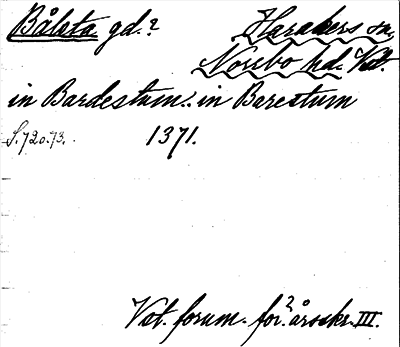 Bålsta gd.? Harakers sn,
Norrbo hd. Vstm.
in Bardestum. in Barestum
S. 720. 73. 1371.
Vst. fornm. för:s årsskr. III.